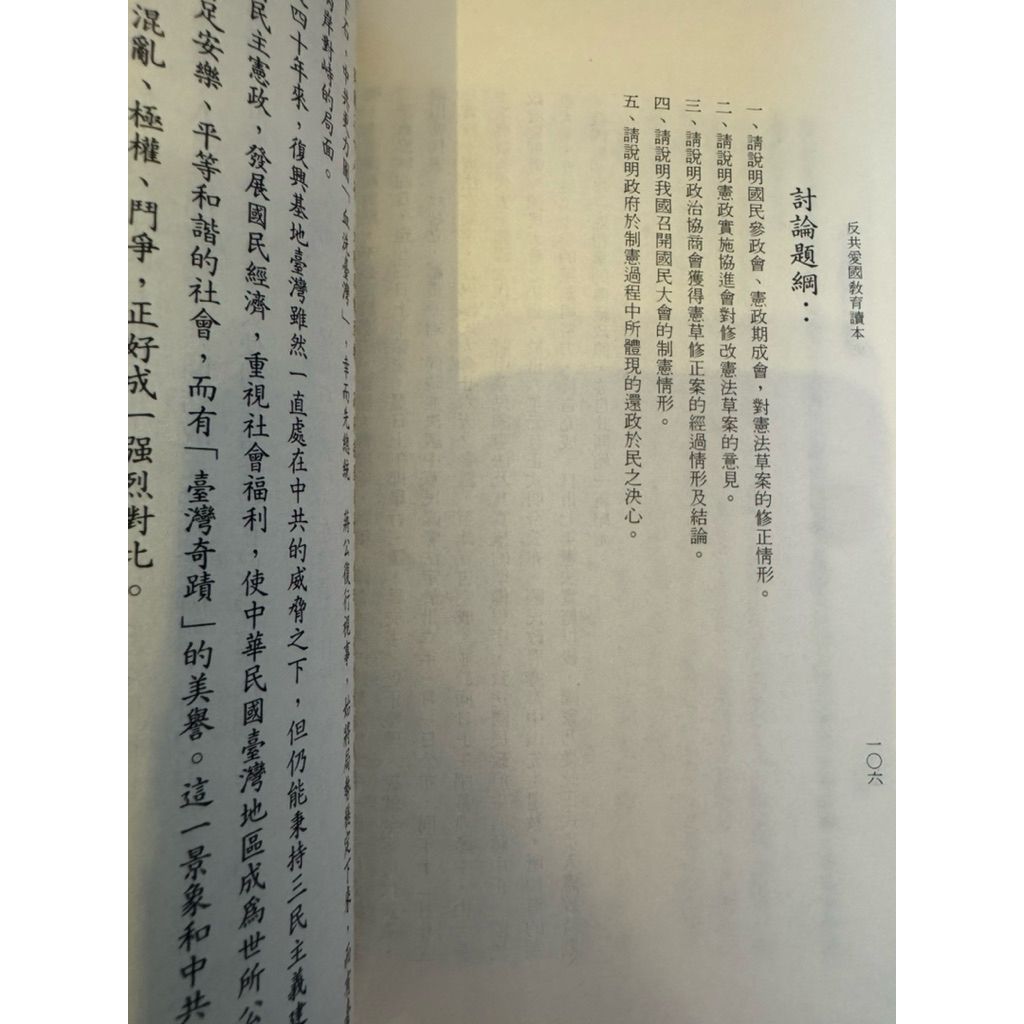 反共愛國教育讀本
一〇六
討論題綱：
一、請說明國民參政會、憲政期成會，對憲法草案的修正情形。
二、請說明憲政實施協進會對修改憲法草案的意見。
三、請說明政治協商會獲得憲草修正案的經過情形及結論。
四、請說明我國召開國民大會的制憲情形。
五、請說明政府於制憲過程中所體現的還政於民之決心。
血洗臺灣」，幸而先總統　蔣公復行視事，始將局勢穩定下來，
兩岸對峙的局面。
四十年來，復興基地臺灣雖然一直處在中共的威脅之下，但仍能秉持三民主義建
民主憲政，發展國民經濟，重視社會福利，使中華民國臺灣地區成為世所公
足安樂、平等和諧的社會，而有「臺灣奇蹟」的美譽。這一景象和中共
混亂、極權、鬥爭，正好成一強烈對比。